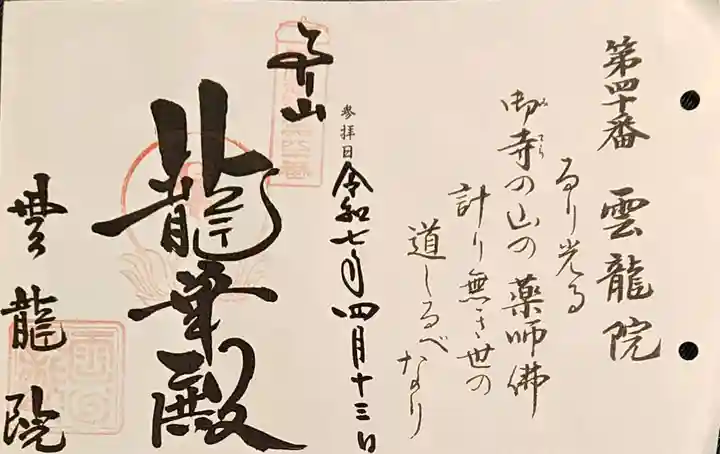 第四十番 雲龍院
るり光る
御寺の山の薬師佛
みてら
計り無き世の
道しるべなり
参拝日
令和七年四月十三日
龍華殿
雲龍院